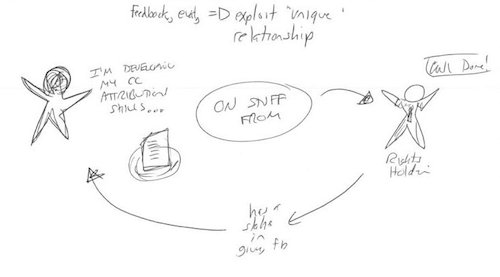 Feedback, eval, => exploit 'unique'
relationship
I'M DEVELOPING
MY CC
ATTRIBUTION
SKILLS...
ON STUFF
FROM
Well Done!
Rights
Holder
has a
stake
in
giving fb